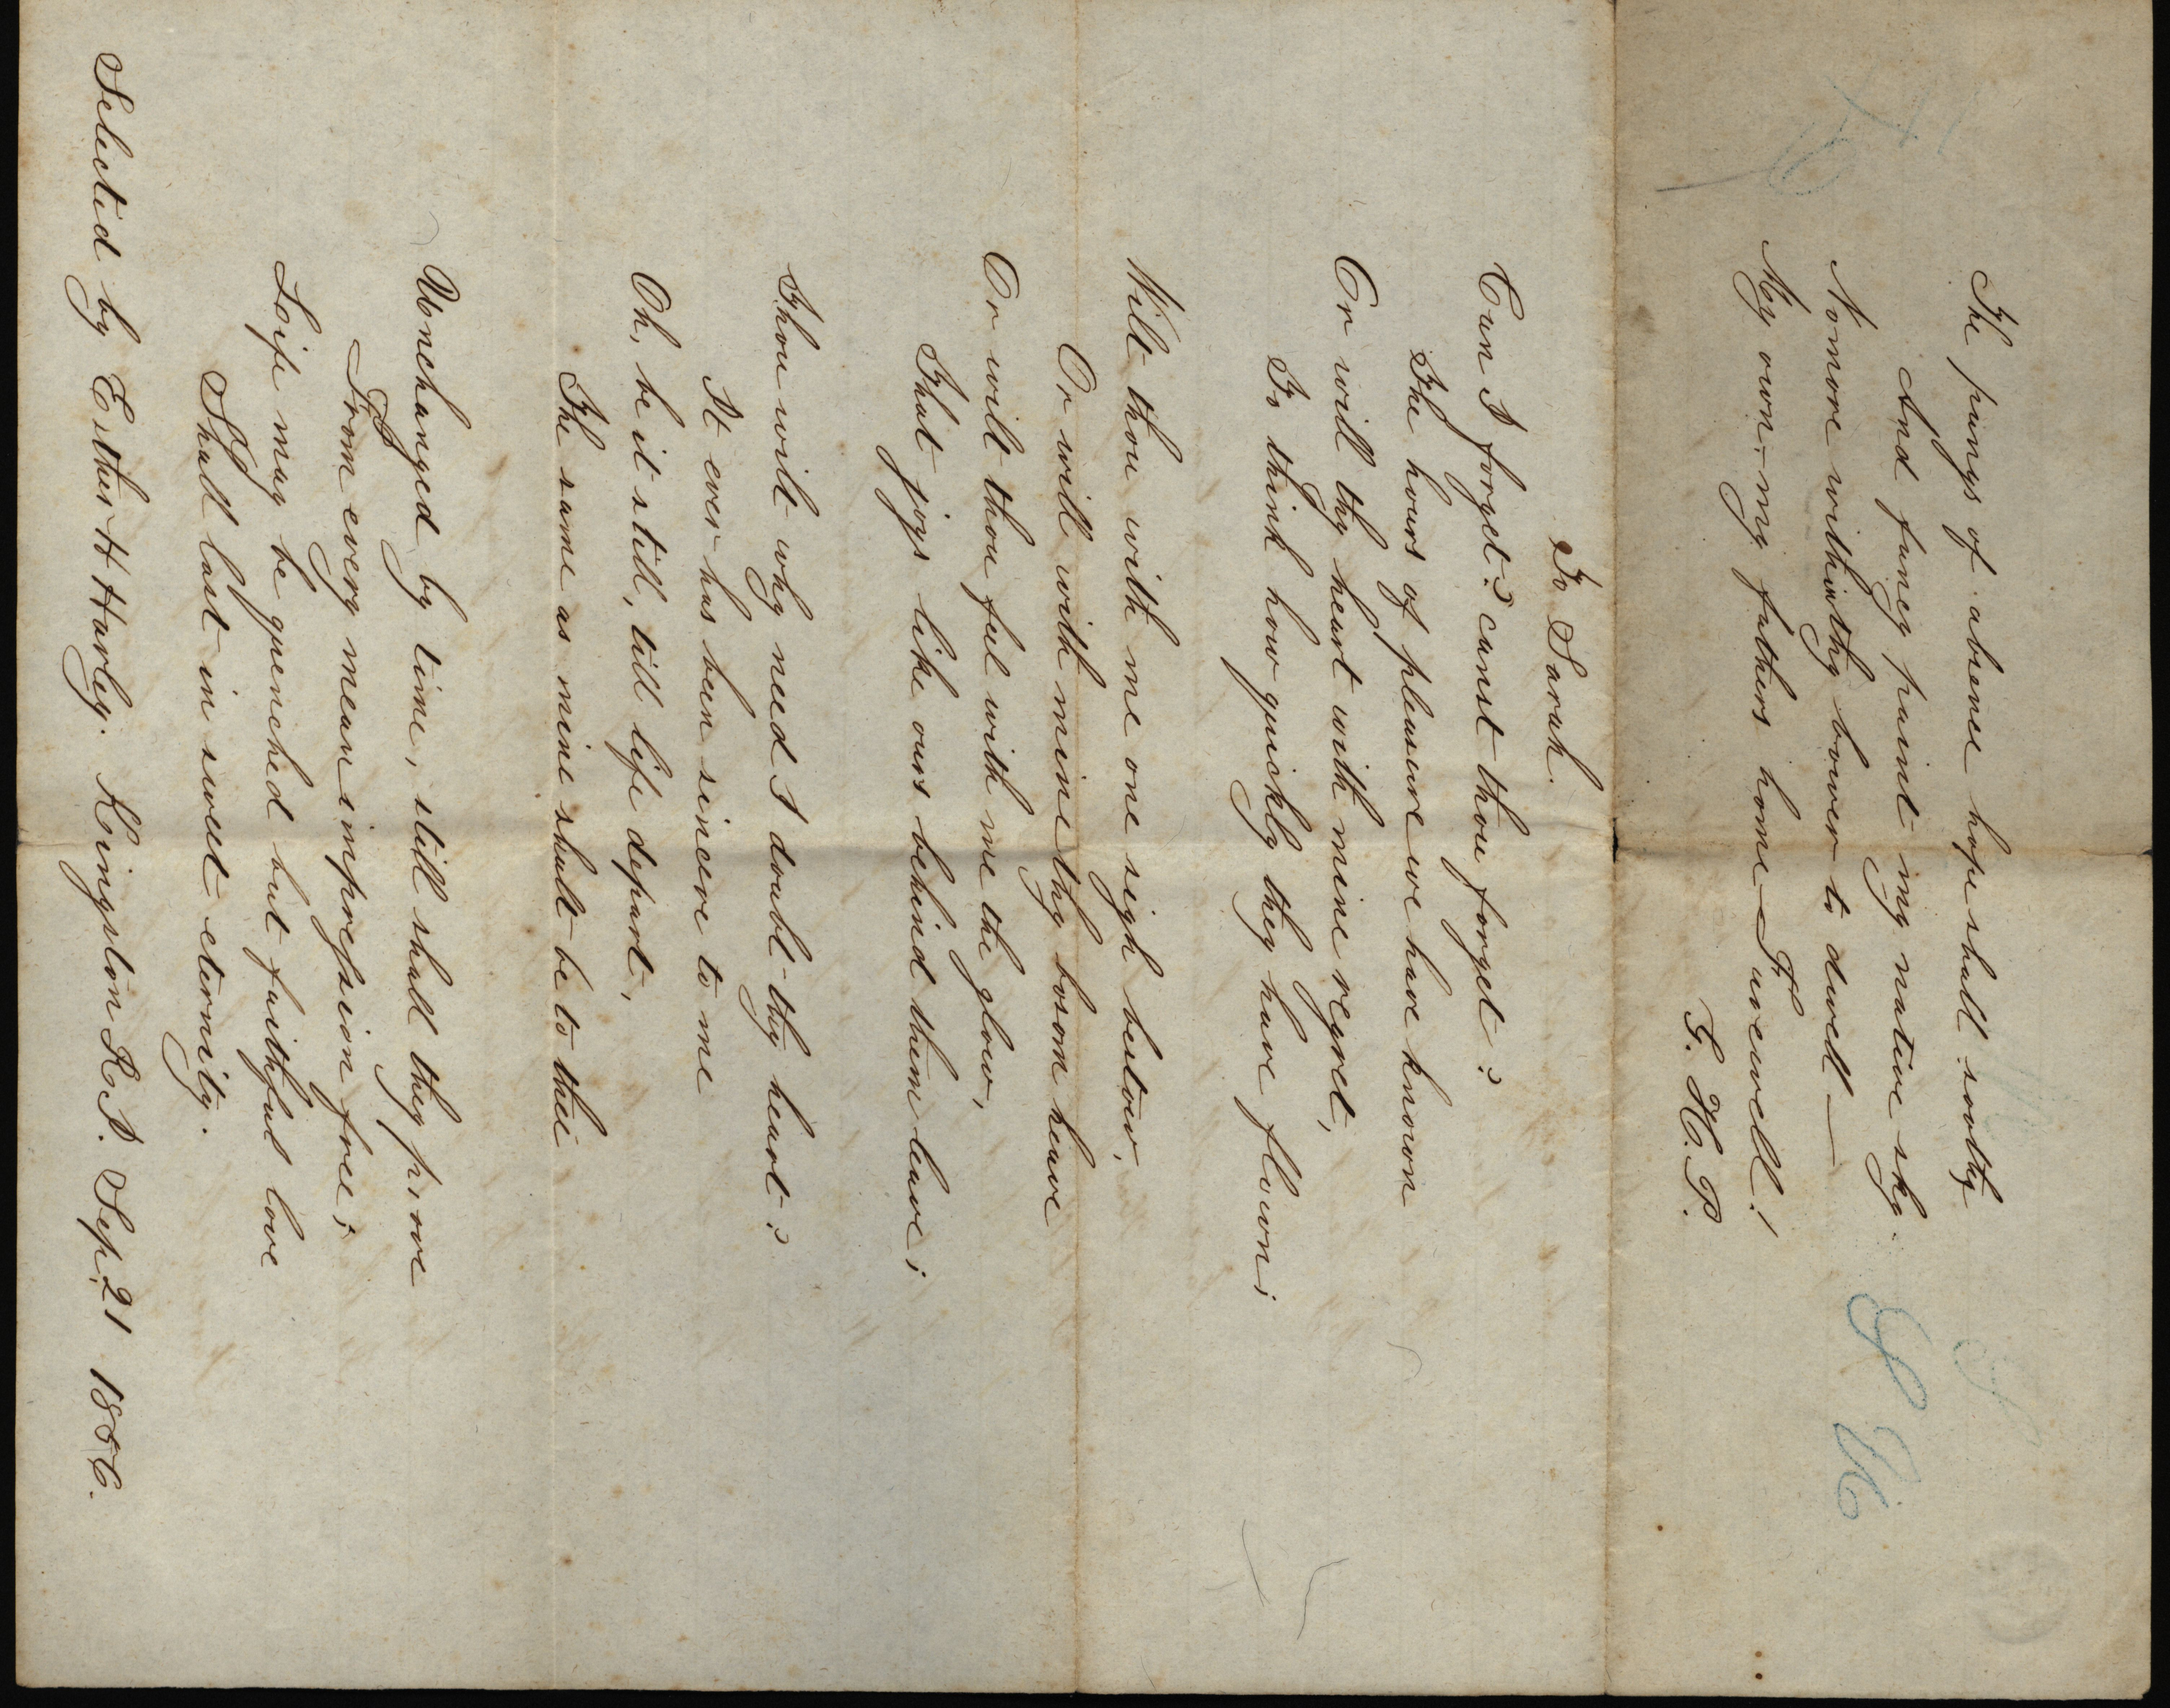 The pangs of abence hope shall sooth,
And fancy paint my native sky.
No more within thy bower to dwell —
My own – my fathers home – Farewell!
G. H. P.
To Sarah.
Can I forget? canst thou forget?
The hours of pleasure we have known
Or will thy heart with mine regret,
To think how quickly they have flown;
Wilt thou with me one sigh bestow,
Or will with mine thy bosom heave
Or wilt thou feel with me the glow,
That joys like ours behind them leave;
Thou wilt why need I doubt thy heart?
It ever has been sincere to me
Oh, be it still, till life depart,
The same as mine shall be to thee
Unchanged by time, still shall they prove
From every mean impression free;
Life may be quenched but faithful love
Shall last in sweet eternity.
Selected by Esther H Harley. Kingston R.I. Sep. 21 1856.
S H